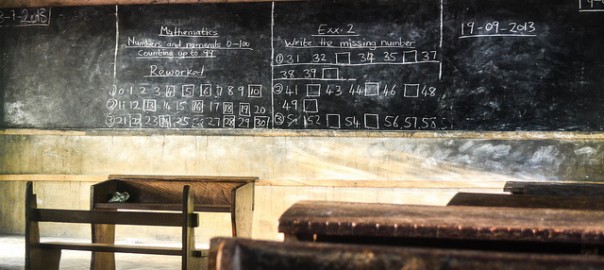 3-9-2013
Mathematics
Numbers and numerals 0-100
Counting up to 99
Reworked
① 0 1 2 3 4 5 6 7 8 9 10
② 11 12 13 14 15 16 17 18 19 20
③ 21 22 23 24 25 27 28 29 30
Exx. 2
Write the missing number
① 31 32 □ 34 35 □ 37
38 39 □
② 41 □ 43 44 □ 46 □ 48
49 □
③ 51 52 □ 54 □ 56, 57, 58
19-09-2013